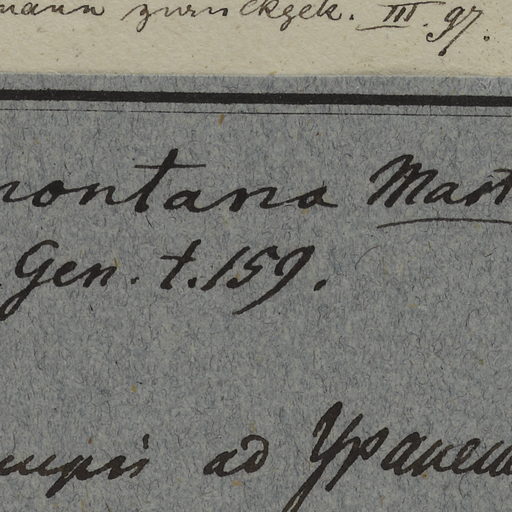 mann zurückgek. III. 97.
montana Mart
Gen. t. 159.
campis ad Ypanem